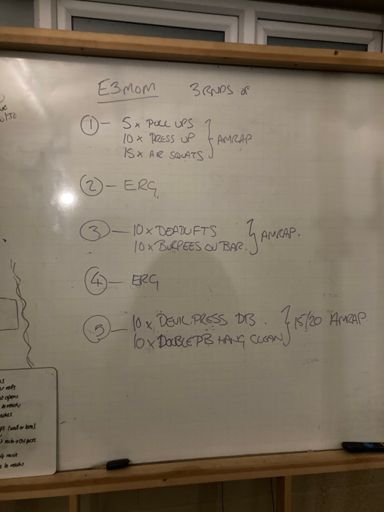 E3MOM 3 RNDS OF
① - 5 x PULL UPS
10 x PRESS UP } AMRAP
15 x AIR SQUATS
② - ERG
③ - 10 x DEADLIFTS } AMRAP.
10 x BURPEES OV BAR.
④ - ERG
⑤ - 10 x DEVIL PRESS DB. } 15/20 AMRAP
10 x DOUBLE DB HANG CLEAN